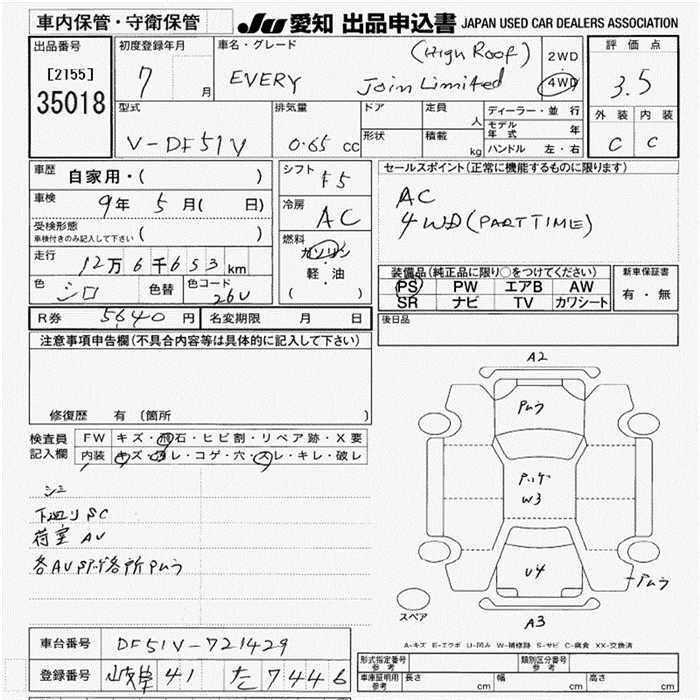 車内保管・守衛保管
JU 愛知 出品申込書 JAPAN USED CAR DEALERS ASSOCIATION
出品番号
[2155]
35018
初度登録年月
7 月
車名・グレード
(High Roof)
EVERY Join Limited
2WD
4WD
評価点
3.5
外装 内装
C C
型式
V-DF51V
排気量
0.65 cc
ドア
形状
定員
人
積載
kg
ディーラー・並行
モデル年式 年
ハンドル 左・右
車歴 自家用・( )
車検 9年 5月( 日)
受検形態
車検付きのみ記入して下さい ( )
走行 12万6千653km
色 シロ 色替 色コード 26U
シフト F5
冷房 AC
燃料
ガソリン
・
軽・油
( )
セールスポイント(正常に機能するものに限ります)
AC
4WD(PARTTIME)
装備品(純正品に限り○をつけてください)
PS PW エアB AW
SR ナビ TV カワシート
新車保証書
有・無
R券 5640円 名変期限 月 日
後日品
注意事項申告欄(不具合内容等は具体的に記入して下さい)
修復歴 有(箇所 )
検査員
記入欄
FW キズ・飛石・ヒビ割・リペア跡・X要
内装 キズ・ヨゴレ・コゲ・穴・スレ・キレ・破レ
シミ
下廻りSC
荷室 AU
A2
W3
U4
A3
スペア
A-キズ E-エクボ U-凹み W-補修跡 S-サビ C-腐食 XX-交換済
車台番号 DF51V-721429
登録番号 岐阜 41 た 7446
形式指定番号
参考
類別区分番号
参考
車庫証明用
参考
長さ cm 幅 cm 高さ cm